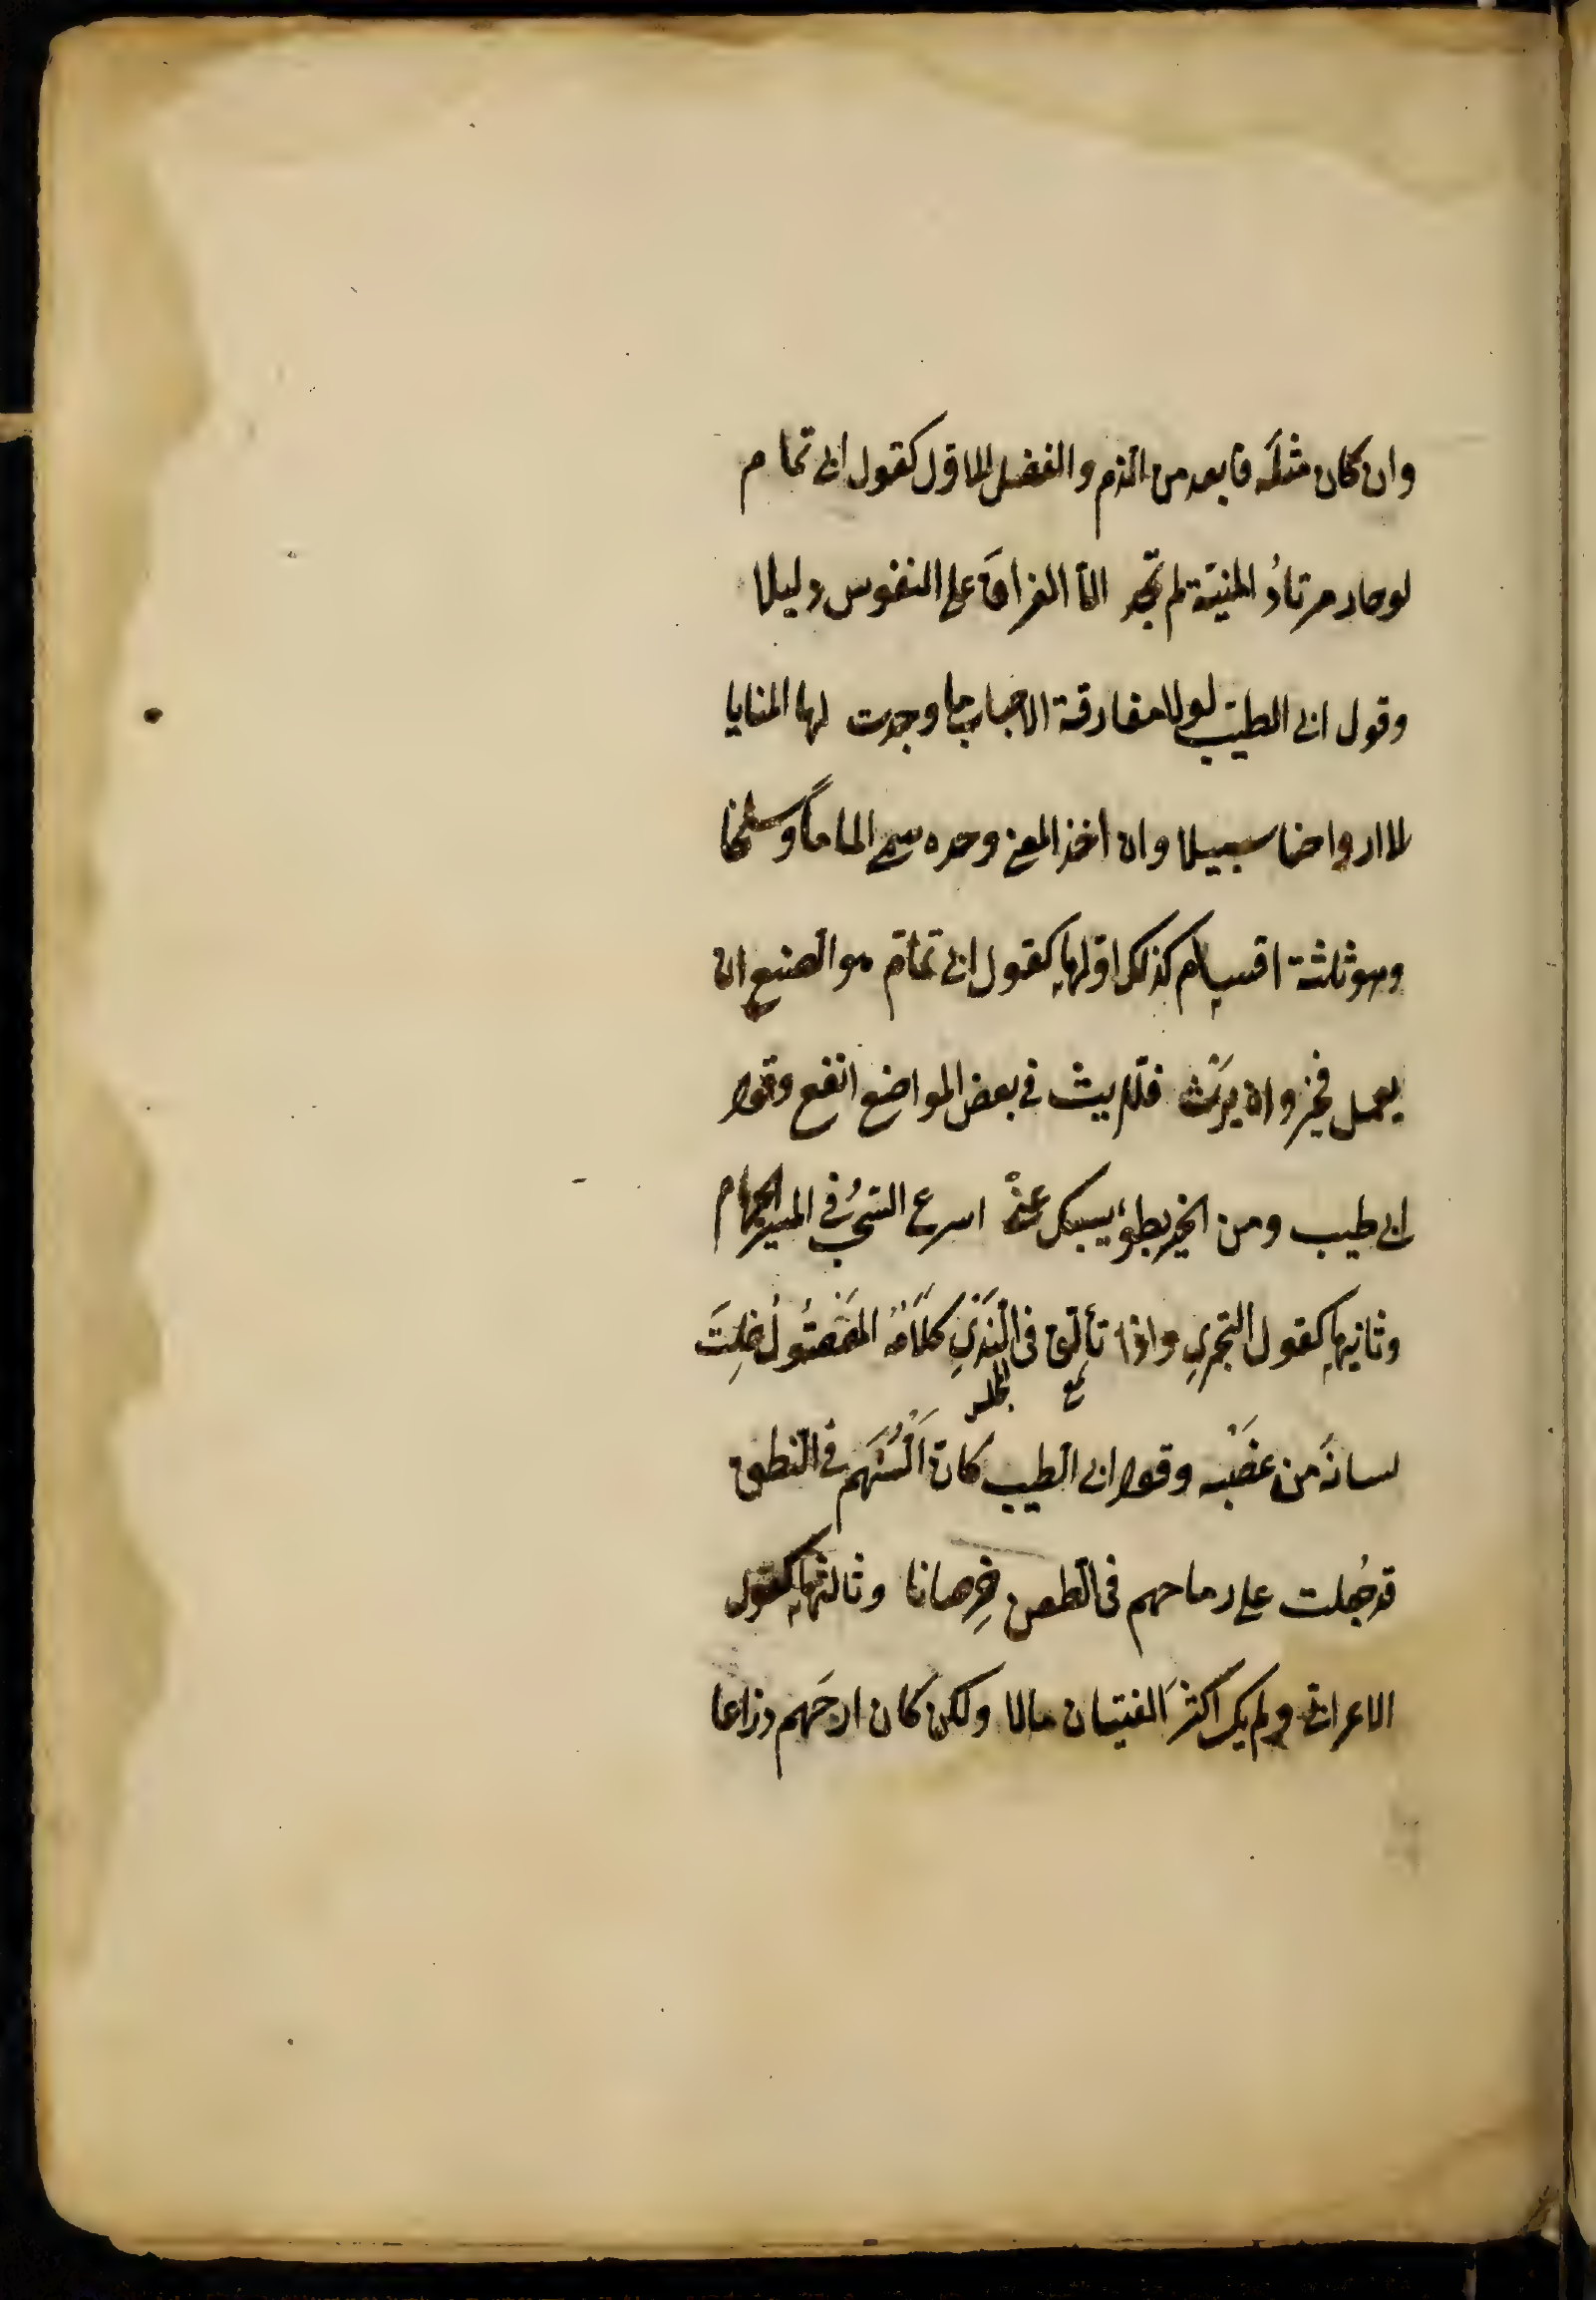 وان كان مثله فابعد من الذم والفضل للاول كقول ابى تمام
لو حار مرتادُ المنيّة لم تجد الّا الفراقَ على النفوس دليلا
وقول ابى الطيّب لولا مفارقة الاحباب ما وجدت لها المنايا
لا ارواحنا سبيلا وان اخذ المعنى وحده سمى الماماً وسلخا
وهو ثلثة اقسام كذلك اوّلها كقول ابى تمّام هو الصنع ان
يعمل فخير وان يَرِث فلَلريث فى بعض المواضع انفع وقول
ابى طيب ومن الخير بطؤ سيبك عنّى اسرع السُّحْب فى المسير الجهام
وثانيها كقول البحترى واذا تألّق فى النَّدِىّ كلَامُهُ المَصْقُولُ خِلتَ
لمع
المجلس
لسانَه من عضبه وقول ابى الطيب كانّ اَلْسُنَهم فى النطق
قد جُعلت على رماحهم فى الطعن خِرصانا وثالثها كقول
الاعرابى ولم يك اكثرَ الفتيان مالا ولكن كان ارحبَهم ذراعا